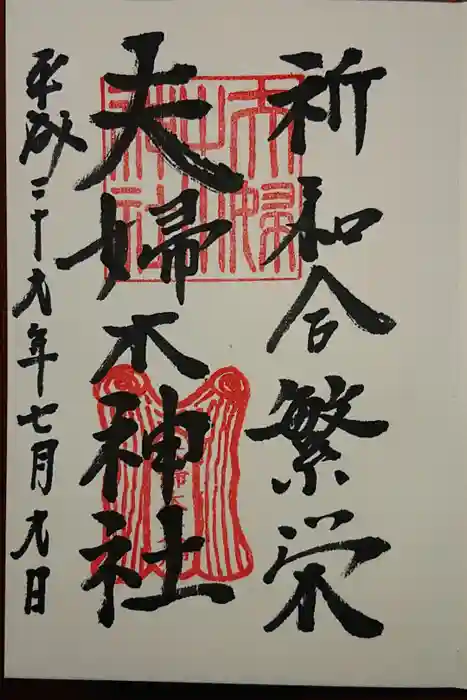 祈和合繁栄
夫婦木神社
平成二十九年七月九日